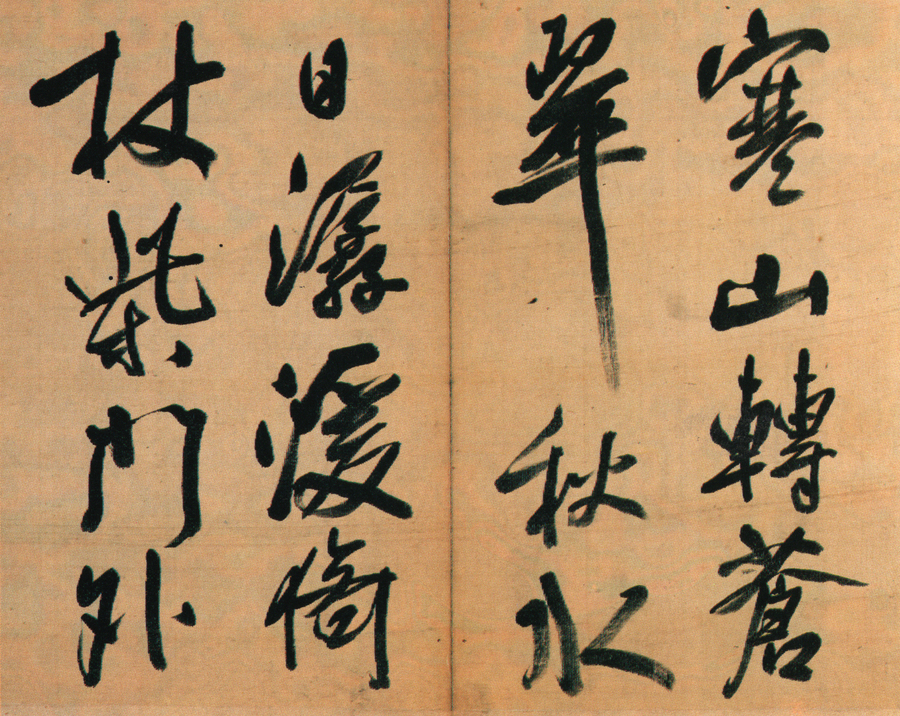 寒山轉蒼
翠秋水
日潺湲倚
杖柴門外